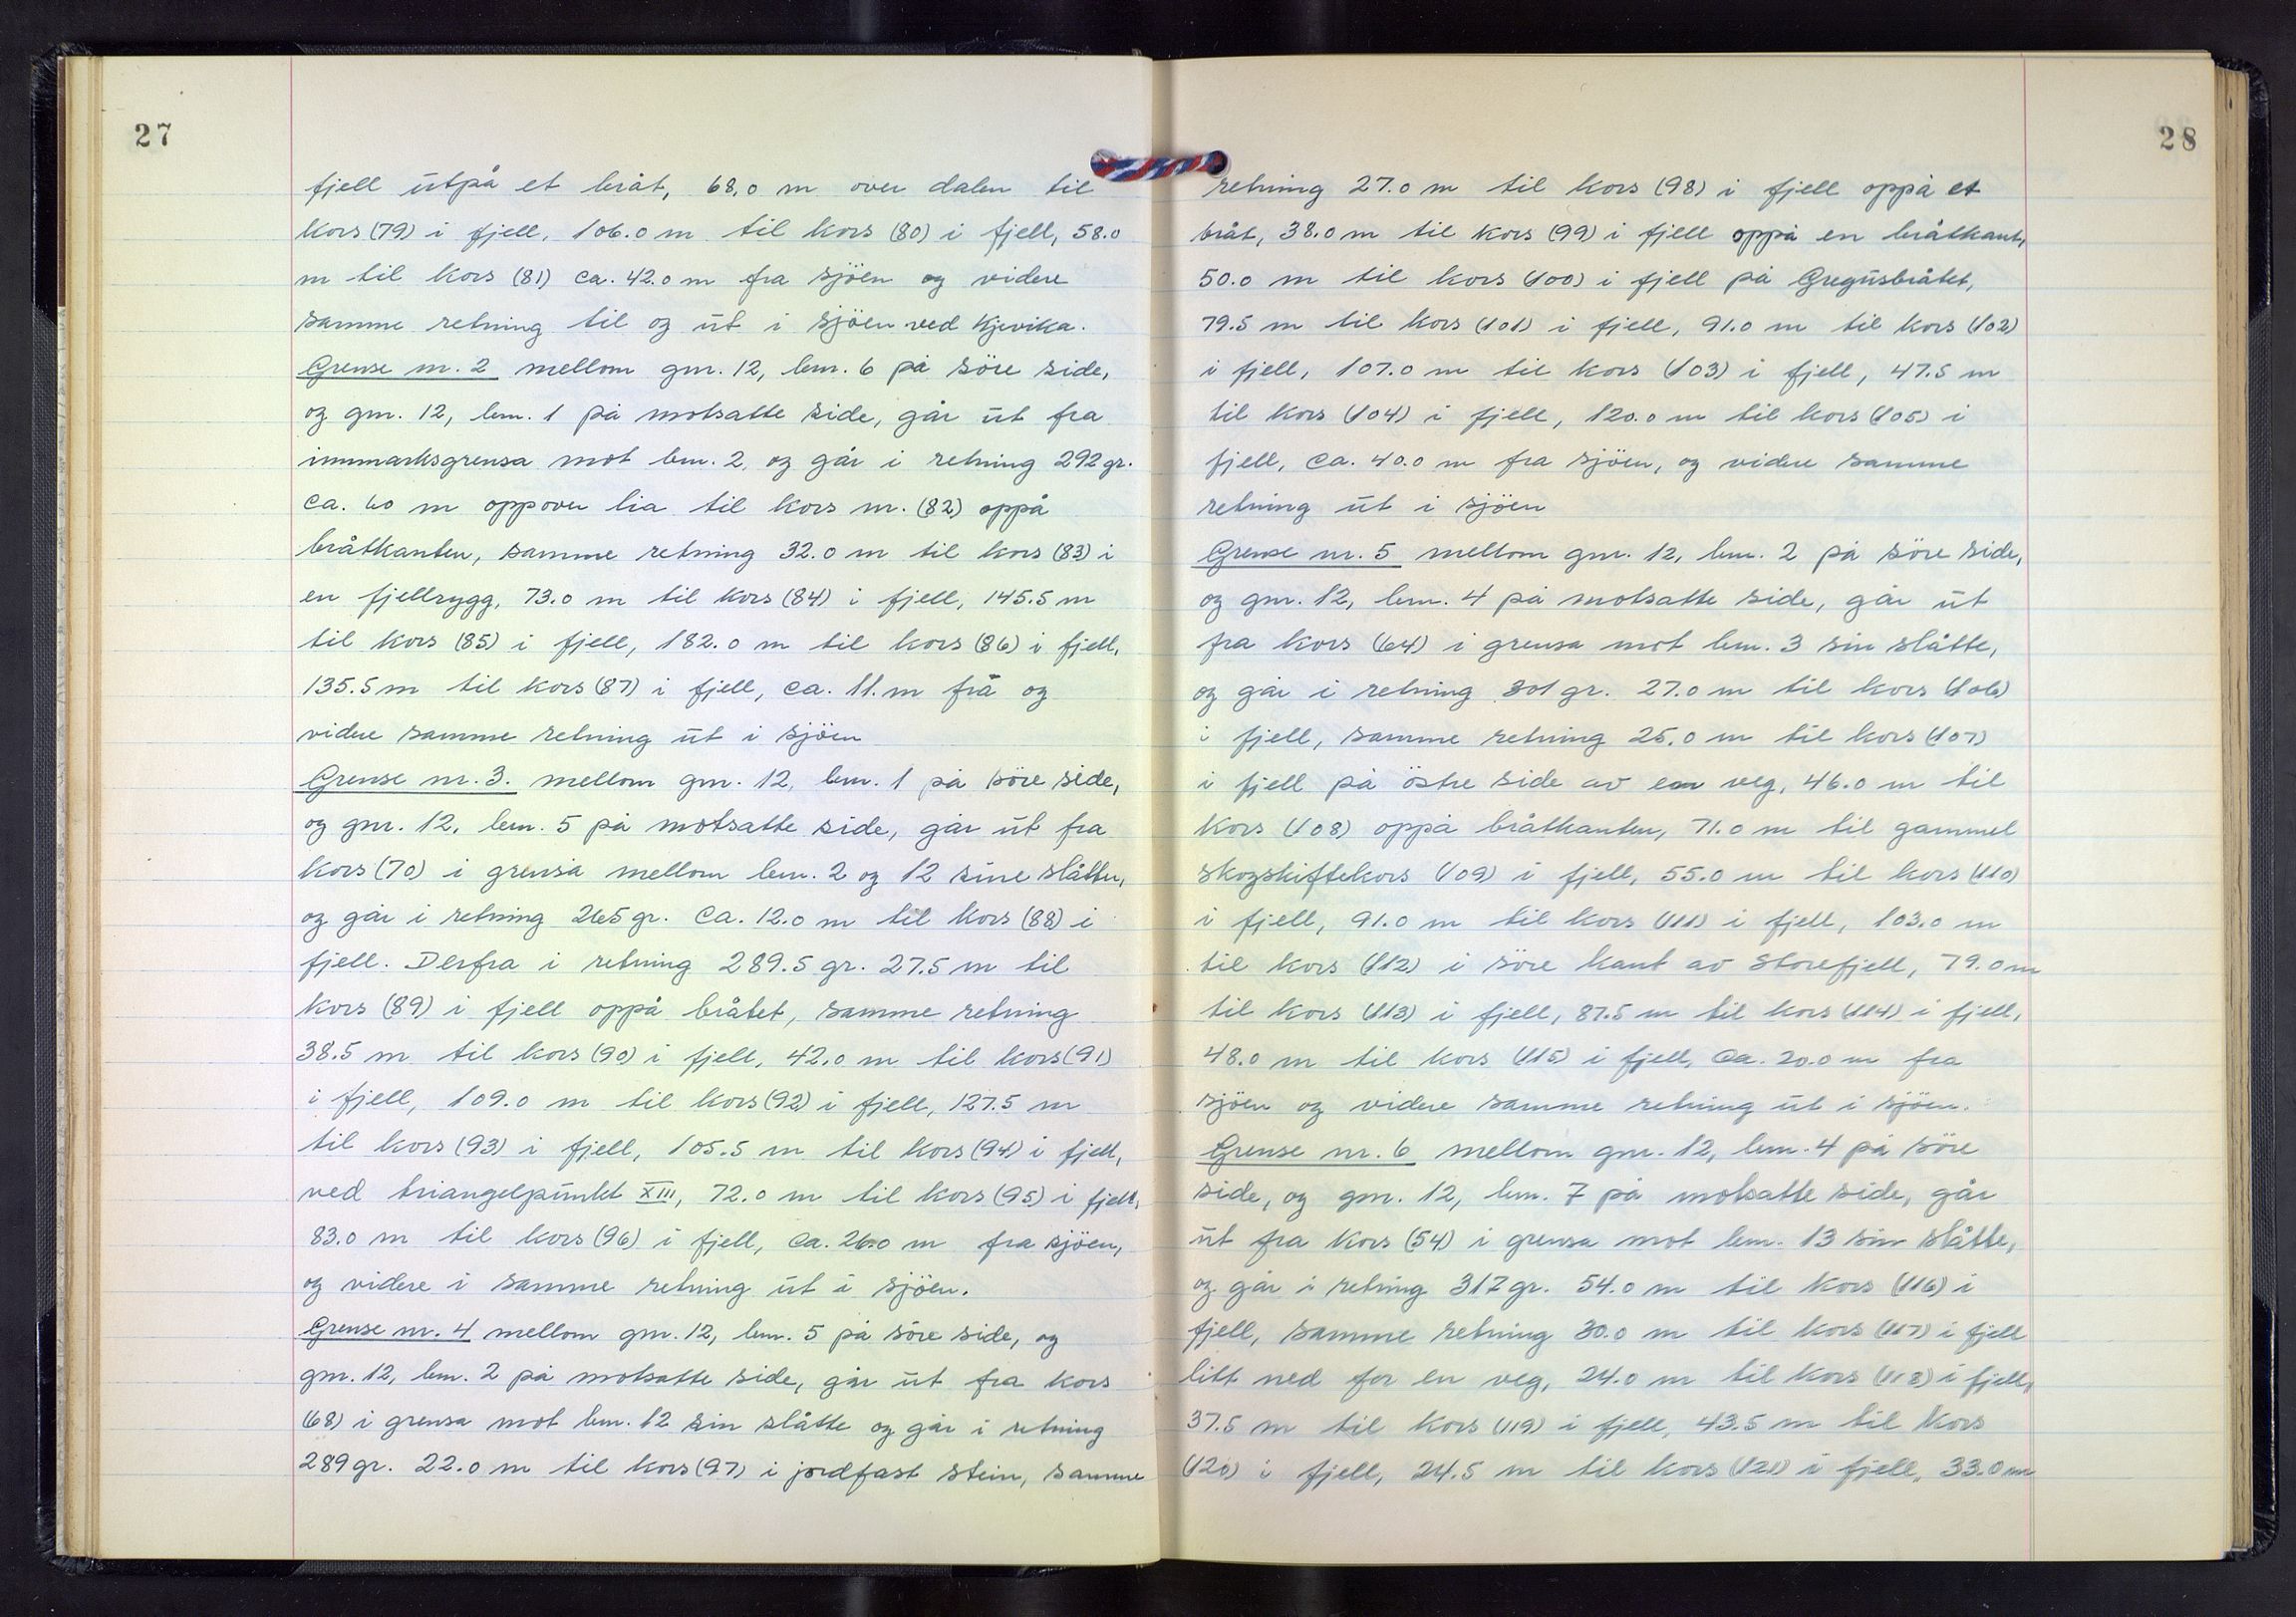 27
fjell utpå et bråt, 68.0 m over dalen til
kors (79) i fjell, 106.0 m til kors (80) i fjell, 58.0
m til kors (81) ca. 42.0 m fra sjöen og videre
samme retning til og ut i sjöen ved Kjevika.
Grense nr. 2 mellom gnr. 12, bnr. 6 på söre side,
og gnr. 12, bnr. 1 på motsatte side, går ut fra
innmarksgrensa mot bnr. 2, og går i retning 292 gr.
ca. 60 m oppover lia til kors nr. (82) oppå
bråtkanten, samme retning 32.0 m til kors (83) i
en fjellrygg, 73.0 m til kors (84) i fjell, 145.5 m
til kors (85) i fjell, 182.0 m til kors (86) i fjell,
135.5 m til kors (87) i fjell, ca. 11. m frå og
videre samme retning ut i sjöen
Grense nr. 3. mellom gnr. 12, bnr. 1 på söre side,
og gnr. 12, bnr. 5 på motsatte side, går ut fra
kors (70) i grensa mellom bnr. 2 og 12 sine slåtter,
og går i retning 265 gr. ca. 12.0 m til kors (88) i
fjell. Derfra i retning 289.5 gr. 27.5 m til
kors (89) i fjell oppå bråtet, samme retning
38.5 m til kors (90) i fjell, 42.0 m til kors (91)
i fjell, 109.0 m til kors (92) i fjell, 127.5 m
til kors (93) i fjell, 105.5 m til kors (94) i fjell,
ved triangelpunkt XIII, 72.0 m til kors (95) i fjell,
83.0 m til kors (96) i fjell, ca. 26.0 m fra sjöen,
og videre i samme retning ut i sjöen.
Grense nr. 4 mellom gnr. 12, bnr. 5 på söre side, og
gnr. 12, bnr. 2 på motsatte side, går ut fra kors
(68) i grensa mot bnr. 12 sin slåtte og går i retning
289 gr. 22.0 m til kors (97) i jordfast stein, samme
28
retning 27.0 m til kors (98) i fjell oppå et
bråt, 38.0 m til kors (99) i fjell oppå en bråtkant,
50.0 m til kors (100) i fjell på Gregusbråtet,
79.5 m til kors (101) i fjell, 91.0 m til kors (102)
i fjell, 107.0 m til kors (103) i fjell, 47.5 m
til kors (104) i fjell, 120.0 m til kors (105) i
fjell, ca. 40.0 m fra sjöen, og videre samme
retning ut i sjöen
Grense nr. 5 mellom gnr. 12, bnr. 2 på söre side,
og gnr. 12, bnr. 4 på motsatte side, går ut
fra kors (64) i grensa mot bnr. 3 sin slåtte,
og går i retning 301 gr. 27.0 m til kors (106)
i fjell, samme retning 25.0 m til kors (107)
i fjell på östre side av en veg, 46.0 m til
kors (108) oppå bråtkanten, 71.0 m til gammel
skogskiftekors (109) i fjell, 55.0 m til kors (110)
i fjell, 91.0 m til kors (111) i fjell, 103.0 m
til kors (112) i söre kant av Storefjell, 79.0 m
til kors (113) i fjell, 87.5 m til kors (114) i fjell,
48.0 m til kors (115) i fjell, ca. 20.0 m fra
sjöen og videre samme retning ut i sjöen.
Grense nr. 6 mellom gnr. 12, bnr. 4 på söre
side, og gnr. 12, bnr. 7 på motsatte side, går
ut fra kors (54) i grensa mot bnr. 13 sin slåtte,
og går i retning 317 gr. 54.0 m til kors (116) i
fjell, samme retning 30.0 m til kors (117) i fjell
litt ned for en veg, 24.0 m til kors (118) i fjell,
37.5 m til kors (119) i fjell, 43.5 m til kors
(120) i fjell, 24.5 m til kors (121) i fjell, 33.0 m